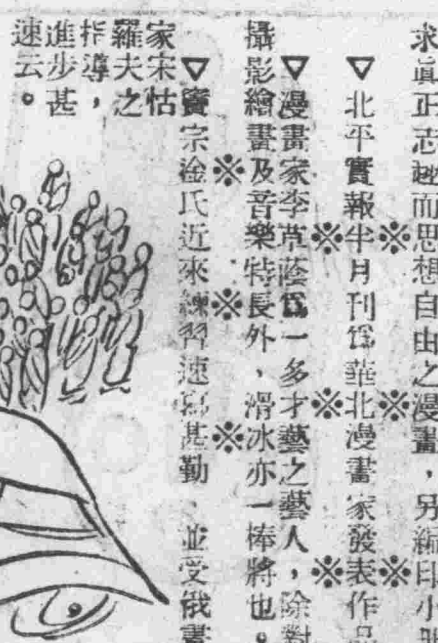 求眞正志趣而思想自由之漫畫，另編印小册
※※※※
▽北平實報半月刊爲華北漫畫家發表作品
※※※※
▽漫畫家李草蔭爲一多才藝之藝人，除對
攝影繪畫及音樂特長外，滑冰亦一棒將也。
※※※
▽竇宗淦氏近來練習速寫甚勤　並受俄畫
家宋怙
羅夫之
指導，
進步甚
速云。